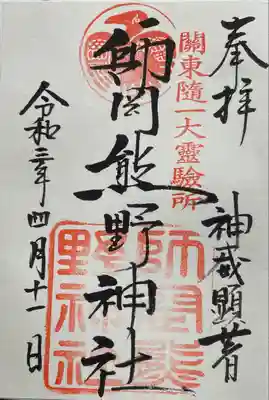 奉拝
神威顕著
關東隨一大靈驗所
師岡熊野神社
師岡熊
野神社
令和三年四月十一日